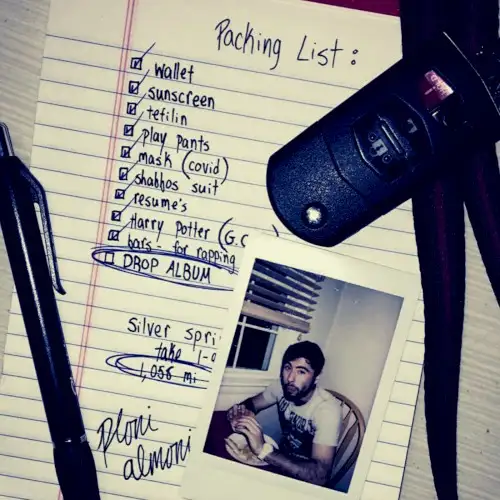 Packing List:
wallet
sunscreen
tefilin
play pants
mask (covid)
shabbos suit
resume's
Harry Potter (G.
bars - for rapping
DROP ALBUM
Silver spri
take 1-
1,056 mi
Ploni
almoni